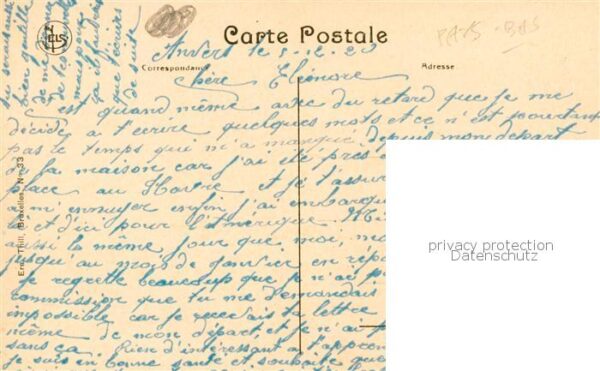 Carte Postale
PAYS-BAS
NELS
Correspondance
Adresse
Anvers le 5-12-20
Chère Eléonore
C'est quand même avec du retard que je me
décide à t'écrire quelques mots et ce n'est pourtant
pas le temps qui m'a manqué depuis mon départ
de la maison car j'ai été près
place au Havre et je t'assur
m'ennuyer enfin j'ai embarqu
ici et d'ici pour l'Amérique
aussi le même jour que moi,
jusqu'au mois de janvier en rép
Je regrette beaucoup que je n'ai p
commission que tu me demandais
impossible car je recevais ta lettre
même de mon départ, et je n'ai
sans ça. Rien d'intéressant à t'apprend
je suis en bonne santé et souhaite que
tu serais
bien gentille
de me
de tes
mais
il faudrait
que l'écrire
de suite
Ern. Thill, Bruxelles, N° 33
privacy protection
Datenschutz